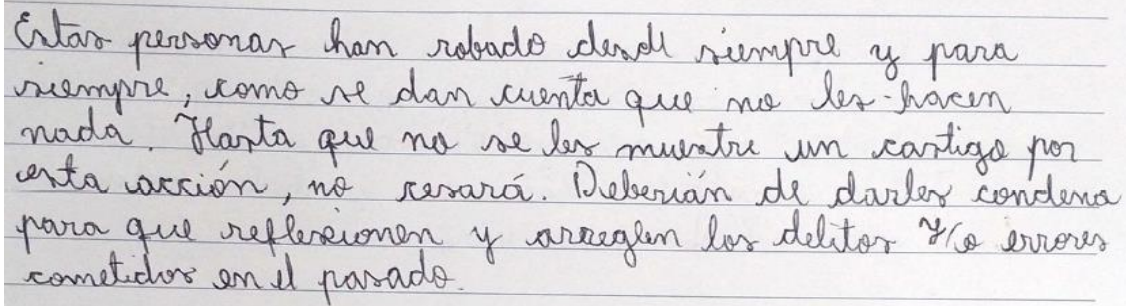 Estas personas han robado desde siempre y para
siempre, como se dan cuenta que no les hacen
nada. Hasta que no se les muestre un castigo por
esta acción, no cesará. Deberían de darles condena
para que reflexionen y arreglen los delitos y/o errores
cometidos en el pasado.